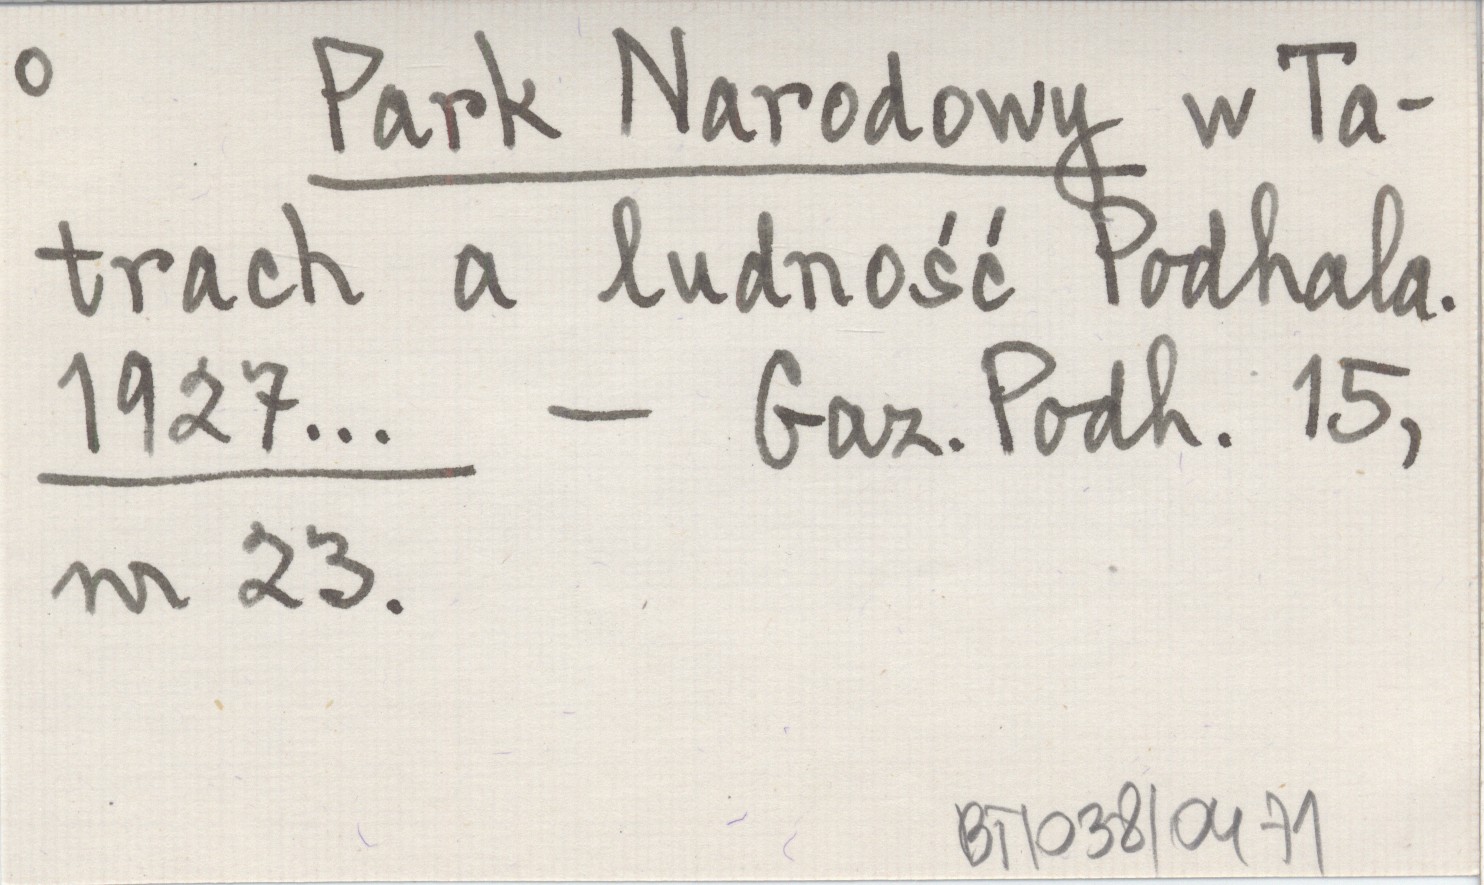 o Park Narodowy w Ta-
trach a ludność Podhala.
1927... — Gaz. Podh. 15,
nr 23.
BT/038/0471